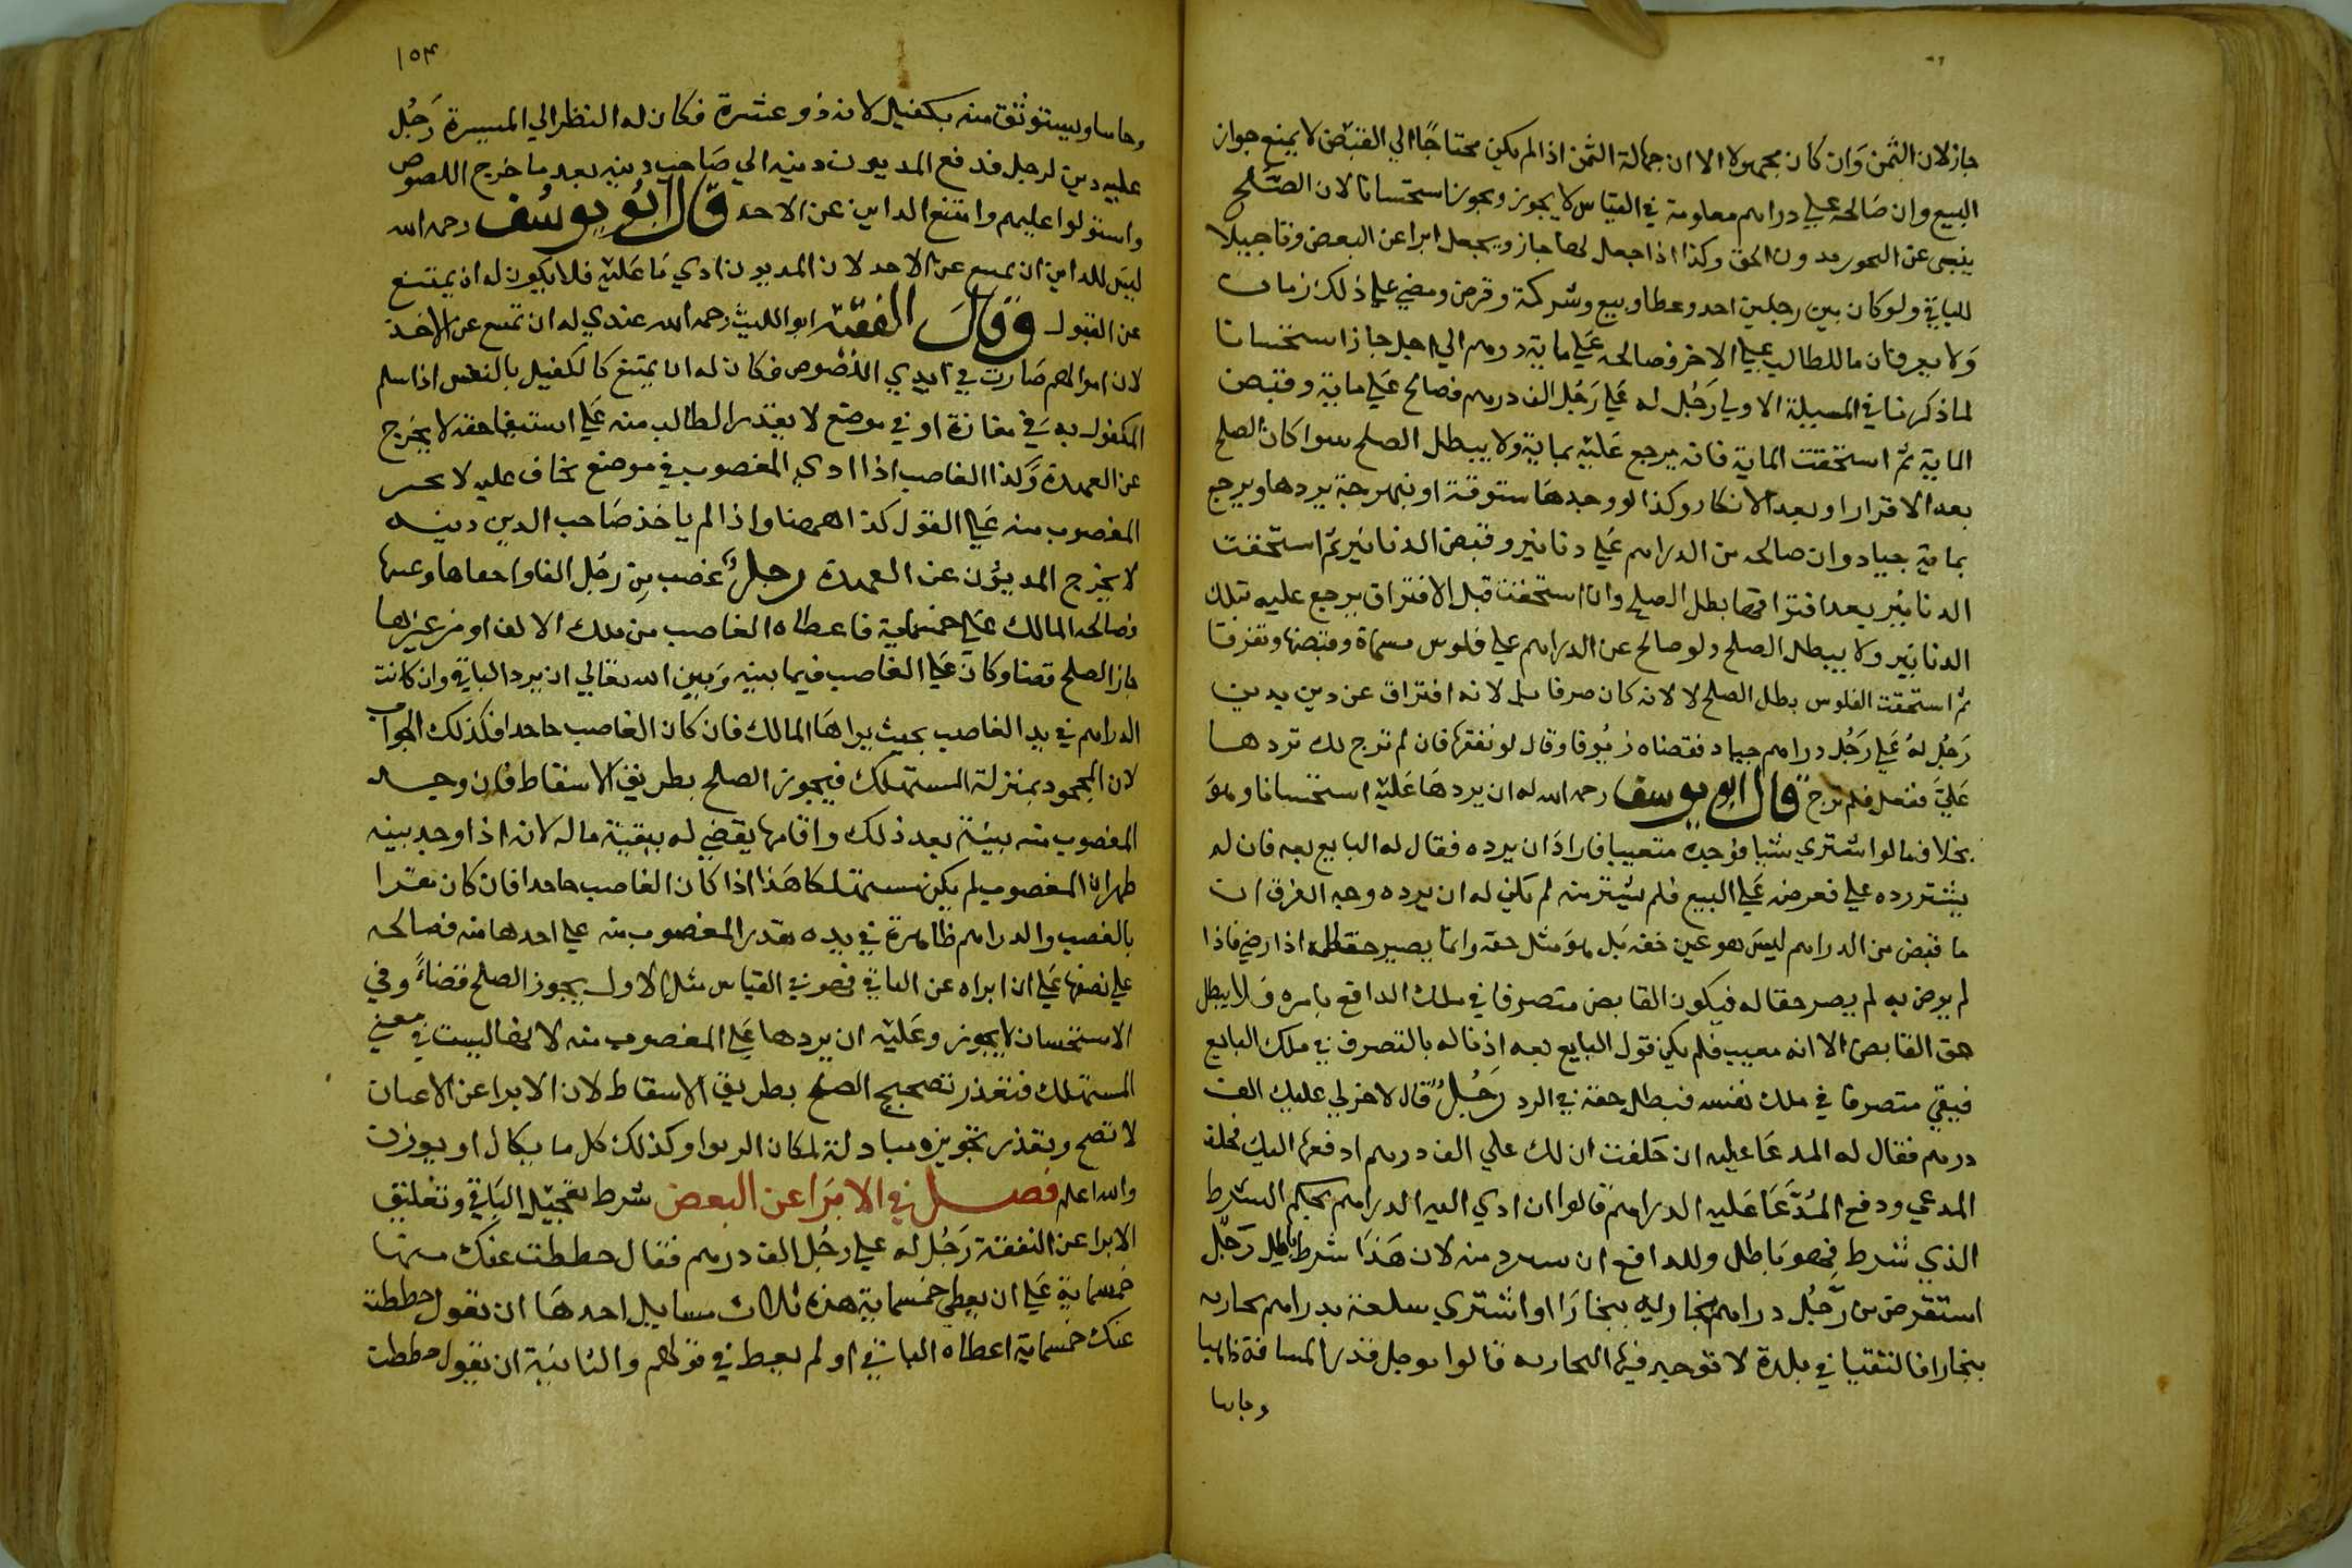 جاز لان الثمن وان كان مجهولا الا ان جهالة الثمن اذا لم يكن محتاجًا الي القبض لا يمنع جواز
البيع وان صالحه علي دراهم معلومة في القياس لا يجوز ويجوز استحسانا لان الصلح
ينبي عن التجوز بدون الحق وكذا اذا جعل لها جاز ويجعل ابرا عن البعض وتاجيلا
للباقي ولو كان بين رجلين اخذ وعطا وبيع وشركة وقرض ومضي علي ذلك زمان
ولا يعرفان ما للطالب علي الاخر فصالحه علي ماية درهم الي اجل جاز استحسانا
لما ذكرنا في المسيلة الاولي رجل له علي رجل الف درهم فصالح علي ماية وقبض
الماية ثم استحقت الماية فانه يرجع عليه بماية ولا يبطل الصلح سوا كان الصلح
بعد الاقرار او بعد الانكار وكذا لو وجدها ستوقة او نبهرجة يردها ويرجع
بماية جياد وان صالحه من الدراهم علي دنانير وقبض الدنانير ثم استحقت
الدنانير بعد افتراقهما بطل الصلح وان استحقت قبل الافتراق يرجع عليه بتلك
الدنانير ولا يبطل الصلح ولو صالح عن الدراهم علي فلوس مسماة وقبضها وتفرقا
ثم استحقت الفلوس بطل الصلح لا لانه كان صرفا بل لانه افتراق عن دين بدين
رجل له علي رجل دراهم جياد فقضاه زيوفا وقال لو نفقها فان لم ترج لك تردها
علي ففعل فلم ترج قال ابو يوسف رحمه الله له ان يردها عليه استحسانا وهو
بخلاف ما لو اشتري شيا فوجده متعيبا فاراد ان يرده فقال له البايع بعه فان لم
يشتر رده علي فعرضه علي البيع فلم يشتر منه لم يكن له ان يرده وجه الفرق ان
ما قبض من الدراهم ليس هو عين حقه بل هو مثل حقه وانما يصير حقا له اذا رضي فاذا
لم يرض به لم يصر حقا له فيكون القابض متصرفا في ملك الدافع بامره فلا يبطل
حق القابض الا انه معيب فلم يكن قول البايع بعه اذنا له بالتصرف في ملك البايع
فيبقي متصرفا في ملك نفسه فبطل حقه في الرد رجل قال لاخر لي عليك الف
درهم فقال له المدعا عليه ان حلفت ان لك علي الف درهم ادفعها اليك فحلف
المدعي ودفع المدعا عليه الدراهم قالوا ان ادي اليه الدراهم بحكم الشرط
الذي شرط فهو باطل وللدافع ان يسترد منه لان هذا شرط باطل رجل
استقرض من رجل دراهم بخارية ببخارا او اشتري سلعة بدراهم بخارية
ببخارا فالتقيا في بلدة لا توجد فيها البخارية قالوا يوجل قدر المسافة ذاهبا
وجايا
١٥٤
وجايا ويستوثق منه بكفيل لانه ذو عشرة فكان له النظر الي الميسرة رجل
عليه دين لرجل فدفع المديون دينه الي صاحب دينه بعد ما خرج اللصوص
واستولوا عليهم وامتنع الداين عن الاخذ قال ابو يوسف رحمه الله
ليس للداين ان يمتنع عن الاخذ لان المديون ادي ما عليه فلا يكون له ان يمتنع
عن القبول وقال الفقيه ابو الليث رحمه الله عندي له ان يمتنع عن الاخذ
لان اموالهم صارت في ايدي اللصوص فكان له ان يمتنع كالكفيل بالنفس اذا سلم
المكفول به في مفازة او في موضع لا يقدر الطالب منه علي استيفا حقه لا يخرج
عن العهدة وكذا الغاصب اذا ادي المغصوب في موضع يخاف عليه لا يجبر
المغصوب منه علي القول كذا ههنا واذا لم ياخذ صاحب الدين دينه
لا يخرج المديون عن العهدة رجل غصب من رجل الفا واخفاها وغيبها
فصالحه المالك علي خمسماية فاعطاه الغاصب من ملك الالف او من غيرها
جاز الصلح قضا وكان علي الغاصب فيما بينه وبين الله تعالي ان يرد الباقي وان كانت
الدراهم في يد الغاصب بحيث يراها المالك فان كان الغاصب جاحدا فكذلك الجواب
لان المجحود بمنزلة المستهلك فيجوز الصلح بطريق الاسقاط فان وجد
المغصوب منه بينة بعد ذلك واقامها يقضي له ببقية ماله لانه اذا وجد بينه
ظهر ان المغصوب لم يكن مستهلكا هذا اذا كان الغاصب جاحدا فان كان مقرا
بالغصب والدراهم ظاهرة في يده بقدر المغصوب منه علي اخدها منه فصالحه
علي نصفها علي ان ابراه عن الباقي فهو في القياس مثل الاول يجوز الصلح قضاءً وفي
الاستحسان لا يجوز وعليه ان يردها علي المغصوب منه لانها ليست في معني
المستهلك فتعذر تصحيح الصلح بطريق الاسقاط لان الابرا عن الاعيان
لا تصح وتعذر تجويزه مبادلة لمكان الربوا وكذلك كل ما يكال او يوزن
والله اعلم فصل في الابرا عن البعض شرط تعجيل الباقي وتعليق
الابرا عن النفقة رجل له علي رجل الف درهم فقال حططت عنك منها
خمسماية علي ان يعطي خمسماية هذه ثلاث مسايل احدها ان يقول حططت
عنك خمسماية اعطاه الباقي او لم يعط في قولهم والثانية ان يقول حططت